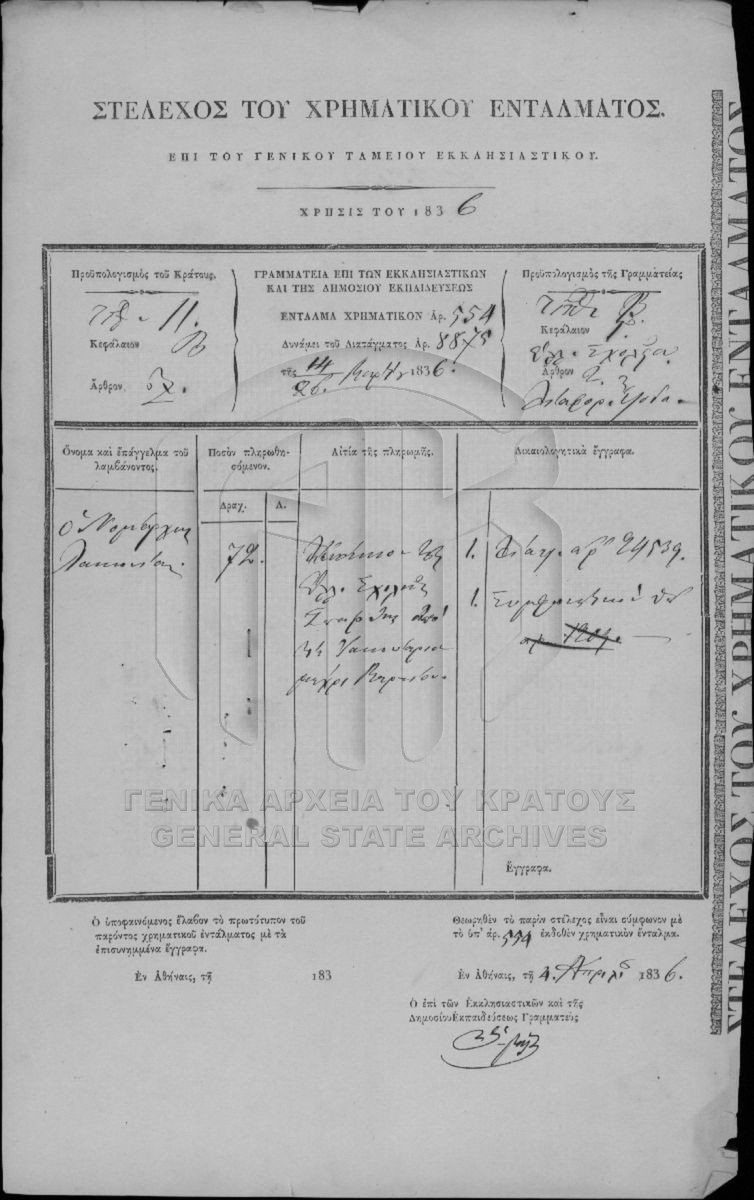 ΣΤΕΛΕΧΟΣ ΤΟΥ ΧΡΗΜΑΤΙΚΟΥ ΕΝΤΑΛΜΑΤΟΣ.
ΕΠΙ ΤΟΥ ΓΕΝΙΚΟΥ ΤΑΜΕΙΟΥ ΕΚΚΛΗΣΙΑΣΤΙΚΟΥ.
ΧΡΗΣΙΣ ΤΟΥ 1836
Προϋπολογισμὸς τοῦ Κράτους.
11.
Κεφάλαιον Β
Ἄρθρον.
ΓΡΑΜΜΑΤΕΙΑ ΕΠΙ ΤΩΝ ΕΚΚΛΗΣΙΑΣΤΙΚΩΝ
ΚΑΙ ΤΗΣ ΔΗΜΟΣΙΟΥ ΕΚΠΑΙΔΕΥΣΕΩΣ
ΕΝΤΑΛΜΑ ΧΡΗΜΑΤΙΚΟΝ Ἀρ. 554
Δυνάμει τοῦ Διατάγματος Ἀρ. 8875
τῆς 14/26. 1836.
Προϋπολογισμὸς τῆς Γραμματείας
Β.
Κεφάλαιον
Ἄρθρον
Ὄνομα καὶ ἐπάγγελμα τοῦ
λαμβάνοντος.
Ποσὸν πληρωθη-
σόμενον.
Αἰτία τῆς πληρωμῆς.
Δικαιολογητικὰ ἔγγραφα.
Δραχ.
Λ.
ὁ Νομάρχης
Λακωνίας.
72.
Σπάρτης ἀπὸ
μέχρι
1. ἀρ. 24539.
1.
ΓΕΝΙΚΑ ΑΡΧΕΙΑ ΤΟΥ ΚΡΑΤΟΥΣ
GENERAL STATE ARCHIVES
Ἔγγραφα.
Ὁ ὑποφαινόμενος ἔλαβον τὸ πρωτότυπον τοῦ
παρόντος χρηματικοῦ ἐντάλματος μὲ τὰ
ἐπισυνημμένα ἔγγραφα.
Ἐν Ἀθήναις, τῇ 183
Θεωρηθὲν τὸ παρὸν στέλεχος εἶναι σύμφωνον μὲ
τὸ ὑπ' ἀρ. 554 ἐκδοθὲν χρηματικὸν ἔνταλμα.
Ἐν Ἀθήναις, τῇ 4. Ἀπριλίου 1836.
Ὁ ἐπὶ τῶν Ἐκκλησιαστικῶν καὶ τῆς
Δημοσίου Ἐκπαιδεύσεως Γραμματεὺς
ΣΤΕΛΕΧΟΣ ΤΟΥ ΧΡΗΜΑΤΙΚΟΥ ΕΝΤΑΛΜΑΤΟΣ